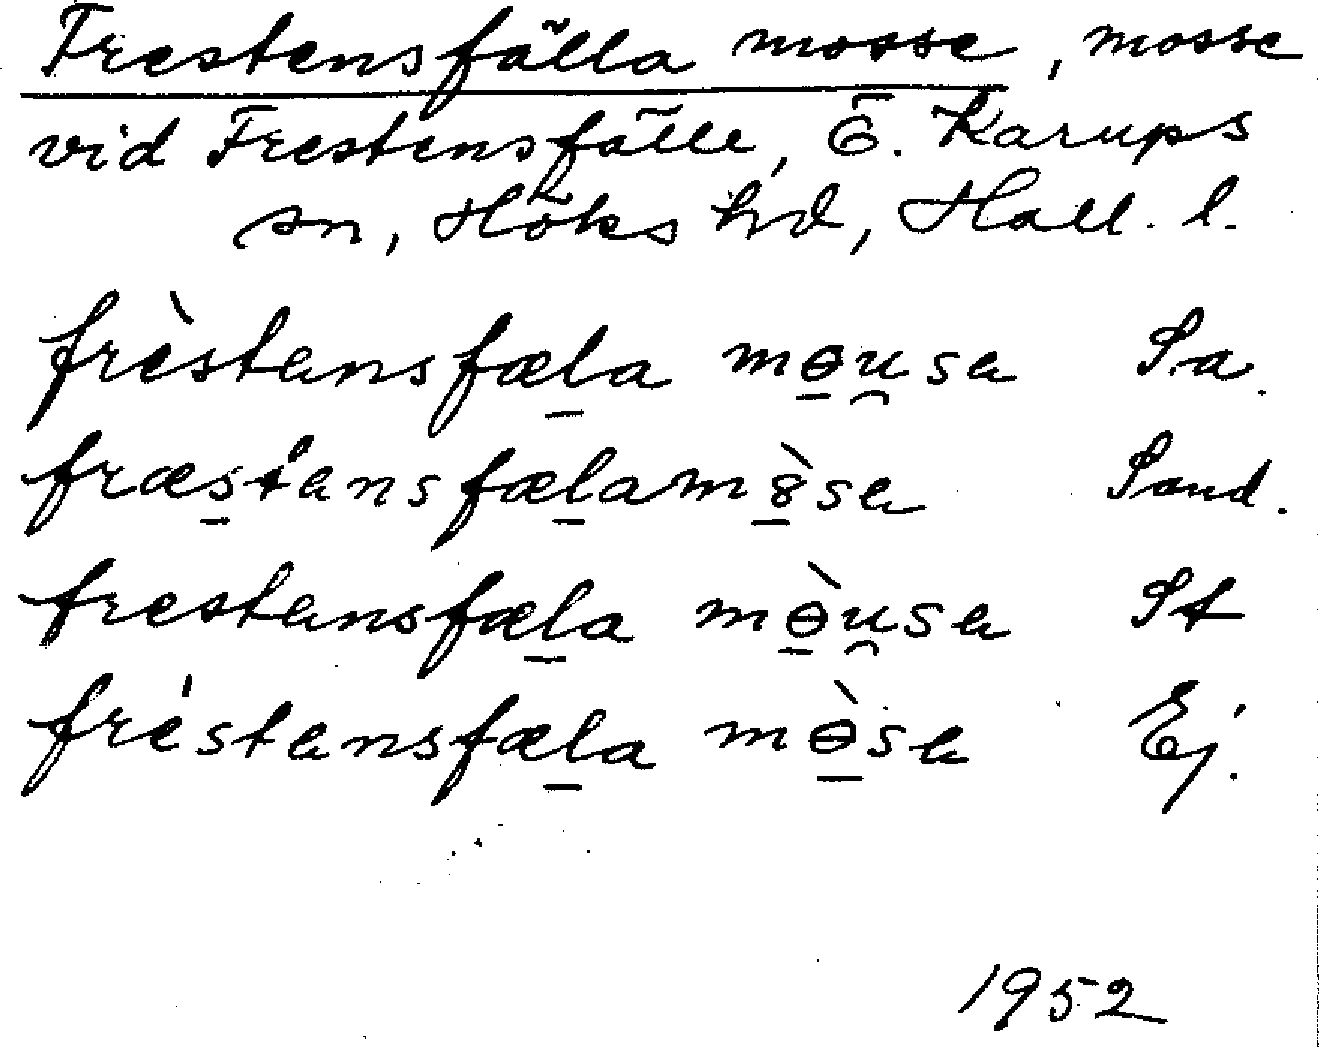 Frestensfälla mosse, mosse
vid Frestensfälle, Ö. Karups
sn, Höks hd, Hall. l.
frèstansfæla mөu̯sa Sa.
fræstansfælamòsa Sand.
frestansfæla mө̀u̯sa St
fréstansfæla mө̀sa Ej.
1952